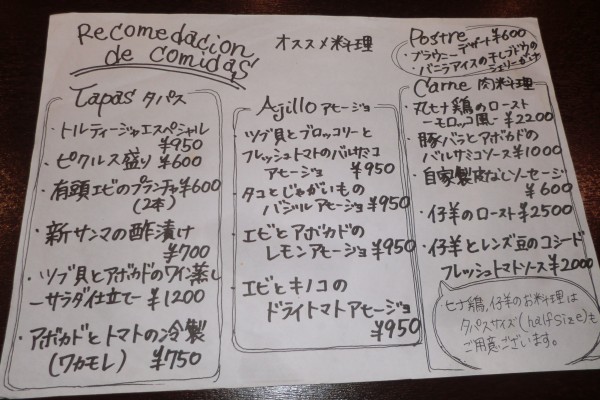 Recomedacion
de comidas
オススメ料理
Tapas タパス
・トルティージャエスペシャル
¥950
・ピクルス盛り ¥600
・有頭エビのプランチャ¥600
(2本)
・新サンマの酢漬け
¥700
・ツブ貝とアボカドのワイン蒸し
ーサラダ仕立てー ¥1200
・アボカドとトマトの冷製
(ワカモレ) ¥750
Ajillo アヒージョ
・ツブ貝とブロッコリーと
フレッシュトマトのバルサミコ
アヒージョ ¥950
・タコとじゃがいもの
バジルアヒージョ ¥950
・エビとアボカドの
レモンアヒージョ ¥950
・エビとキノコの
ドライトマトアヒージョ
¥950
Postre
デザート ¥600
・ブラウニー
・バニラアイスの干しブドウの
シェリーがけ
Carne 肉料理
・丸ヒナ鶏のロースト
ーモロッコ風ー ¥2200
・豚バラとアボカドの
バルサミコソース ¥1000
・自家製皮なしソーセージ
¥600
・仔羊のロースト ¥2500
・仔羊とレンズ豆のコシード
フレッシュトマトソース ¥2000
ヒナ鶏,仔羊のお料理は
タパスサイズ(half size)も
ご用意ございます。